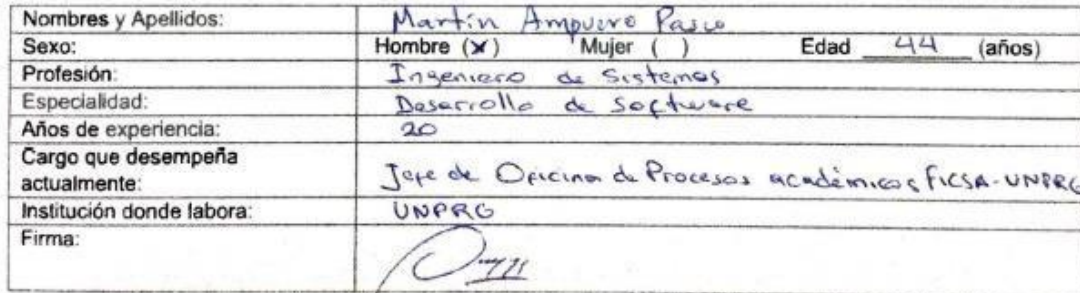 Nombres y Apellidos: Martín Ampuero Pasco
Sexo: Hombre (x) Mujer ( ) Edad 44 (años)
Profesión: Ingeniero de Sistemas
Especialidad: Desarrollo de Software
Años de experiencia: 20
Cargo que desempeña
actualmente: Jefe de Oficina de Procesos académicos FICSA-UNPRG
Institución donde labora: UNPRG
Firma: